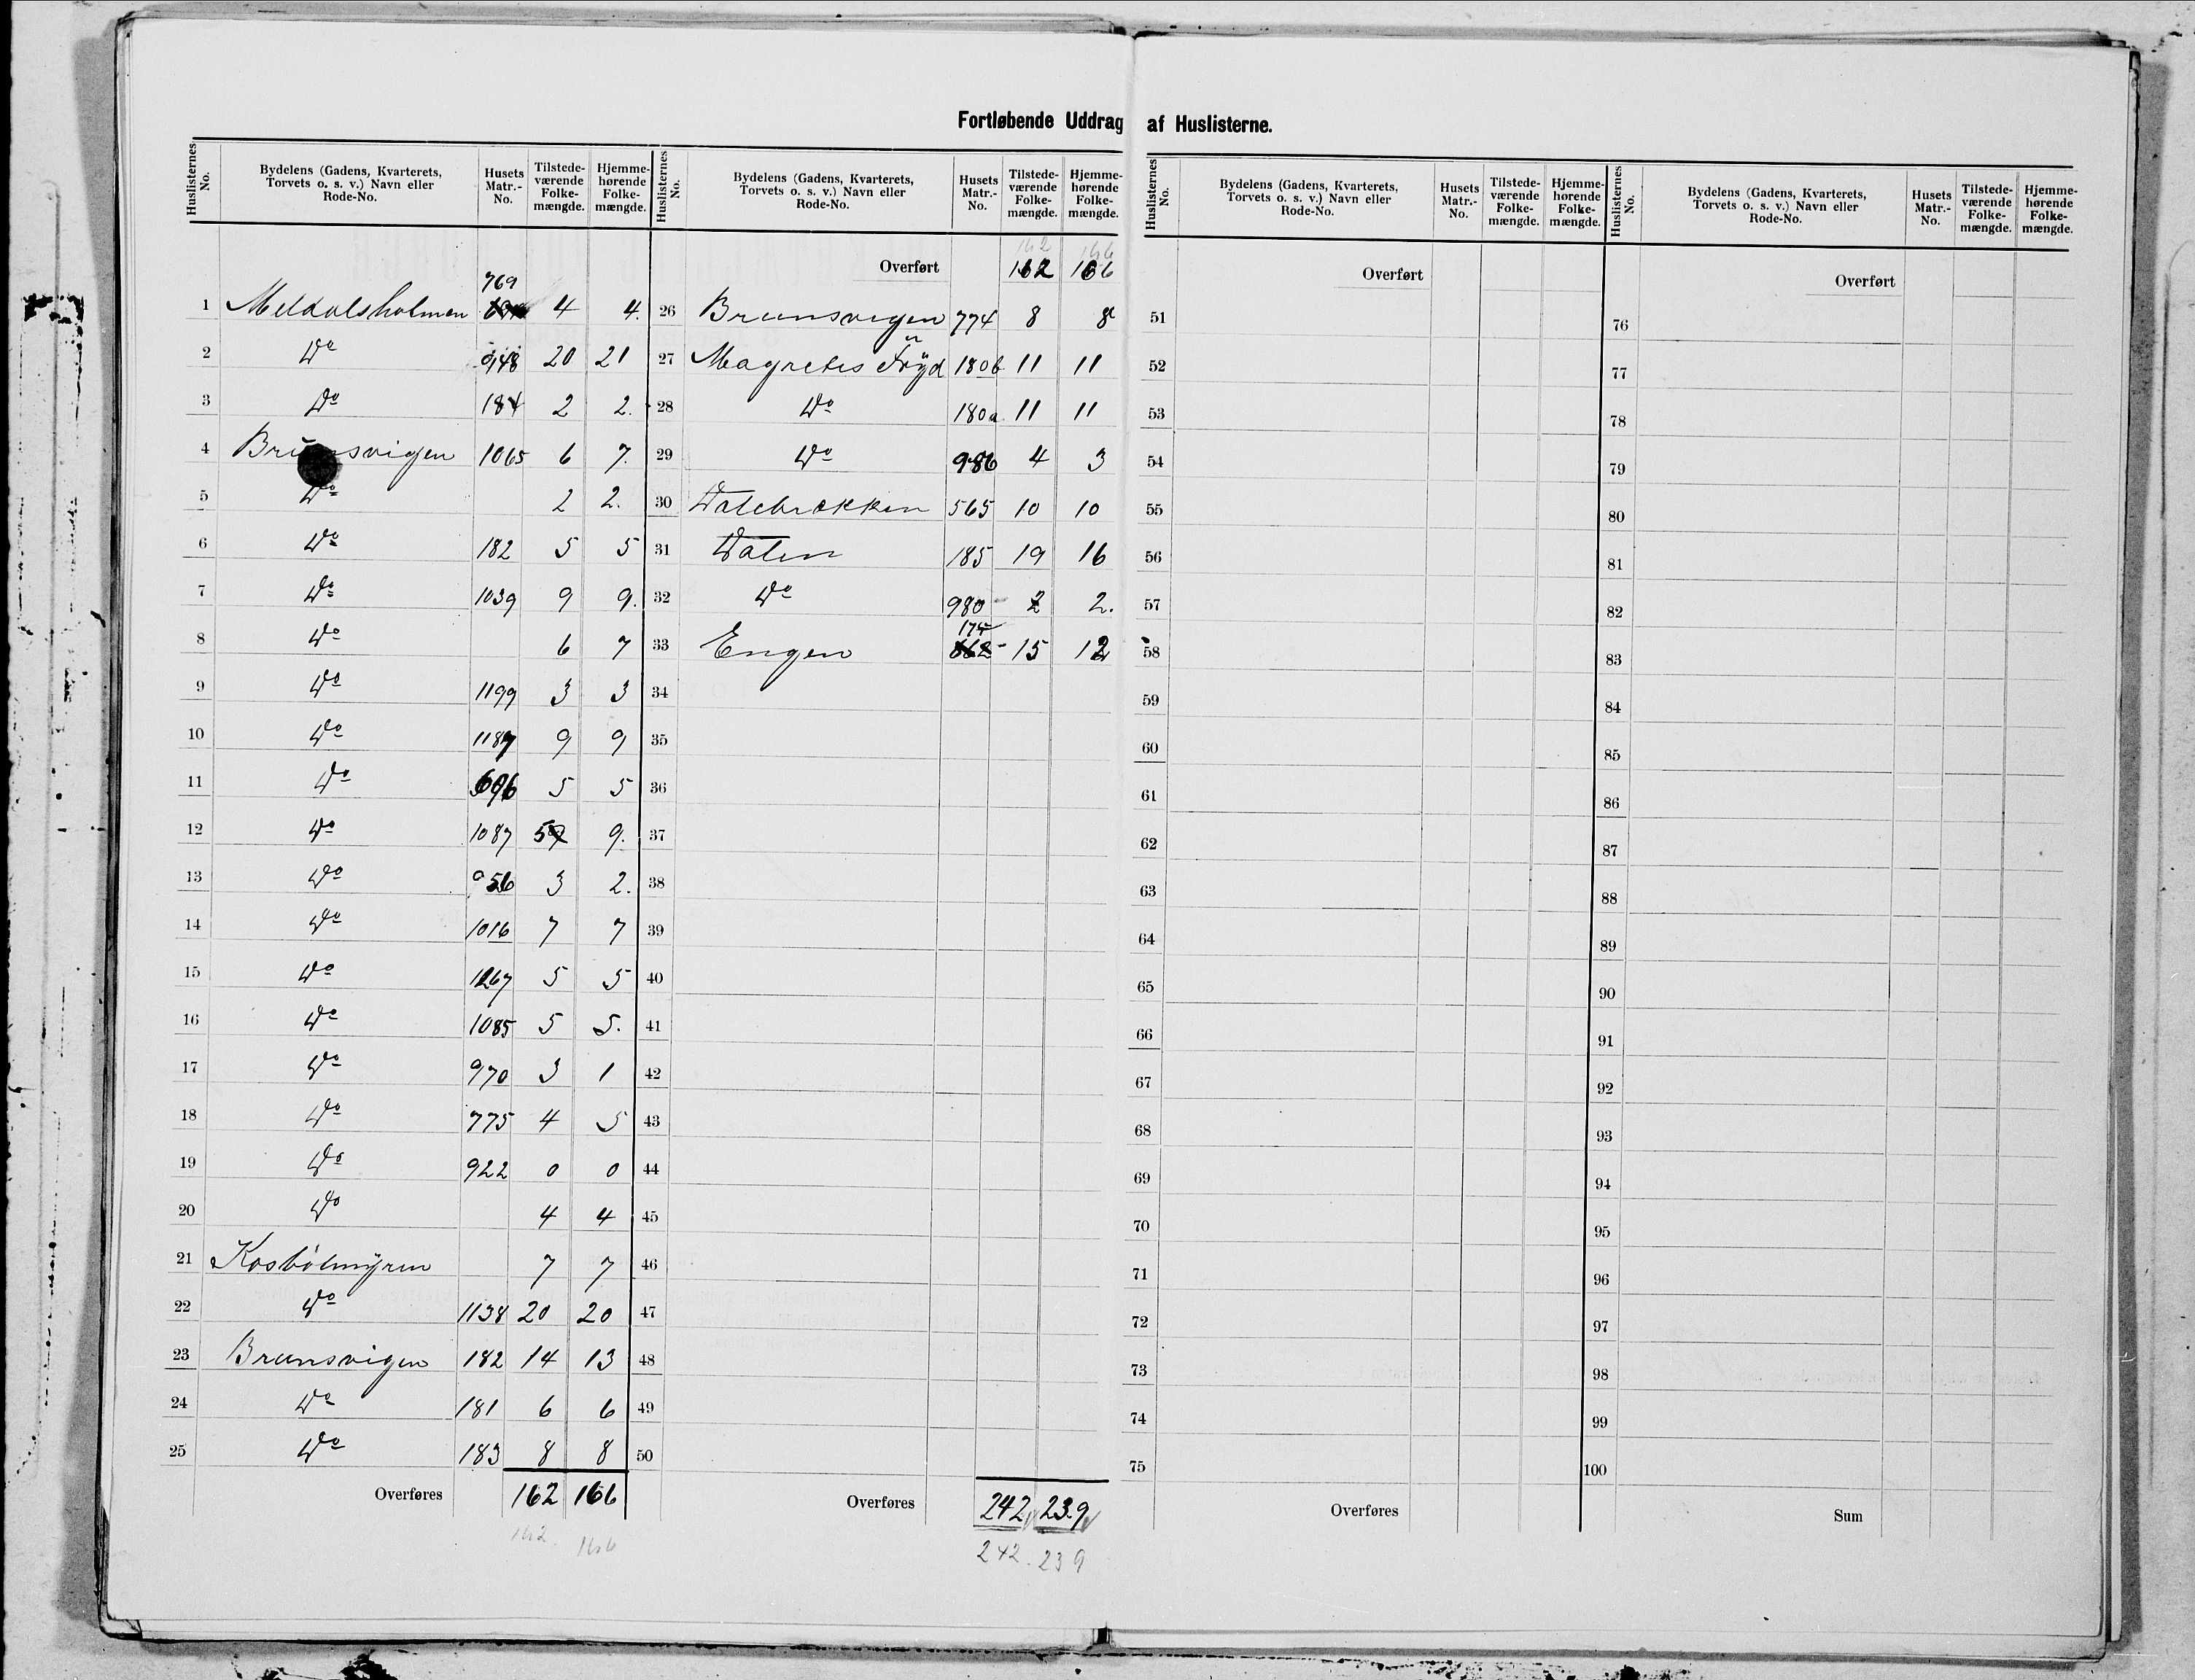 Fortløbende Uddrag af Huslisterne.
Huslisternes No. Bydelens (Gadens, Kvarterets, Torvets o. s. v.) Navn eller Rode-No. Husets Matr.-No. Tilstede-værende Folke-mængde. Hjemme-hørende Folke-mængde.
769
1 Meldalsholmen 4 4.
2 Do 948 20 21
3 Do 184 2 2.
4 Brunsvigen 1065 6 7.
5 Do 2 2.
6 Do 182 5 5
7 Do 1039 9 9.
8 Do 6 7
9 Do 1199 3 3
10 Do 1187 9 9
11 Do 696 5 5
12 Do 1087 5 9.
13 Do 956 3 2.
14 Do 1016 7 7
15 Do 1267 5 5
16 Do 1085 5 5.
17 Do 970 3 1
18 Do 775 4 5
19 Do 922 0 0
20 Do 4 4
21 Kosbölmÿren 7 7
22 Do 1138 20 20
23 Brunsvigen 182 14 13
24 Do 181 6 6
25 Do 183 8 8
Overføres 162 166
162 166
Huslisternes No. Bydelens (Gadens, Kvarterets, Torvets o. s. v.) Navn eller Rode-No. Husets Matr.-No. Tilstede-værende Folke-mængde. Hjemme-hørende Folke-mængde.
162 166
Overført 162 166
26 Brunsvigen 774 8 8
27 Magretes Frÿd 180b 11 11
28 Do 180a 11 11
29 Do 986 4 3
30 Dalebrækken 565 10 10
31 Dalen 185 19 16
32 Do 980 2 2.
175
33 Engen 662 15 12
34
35
36
37
38
39
40
41
42
43
44
45
46
47
48
49
50
Overføres 242 239
242. 239
Huslisternes No. Bydelens (Gadens, Kvarterets, Torvets o. s. v.) Navn eller Rode-No. Husets Matr.-No. Tilstede-værende Folke-mængde. Hjemme-hørende Folke-mængde.
Overført
51
52
53
54
55
56
57
58
59
60
61
62
63
64
65
66
67
68
69
70
71
72
73
74
75
Overføres
Huslisternes No. Bydelens (Gadens, Kvarterets, Torvets o. s. v.) Navn eller Rode-No. Husets Matr.-No. Tilstede-værende Folke-mængde. Hjemme-hørende Folke-mængde.
Overført
76
77
78
79
80
81
82
83
84
85
86
87
88
89
90
91
92
93
94
95
96
97
98
99
100
Sum